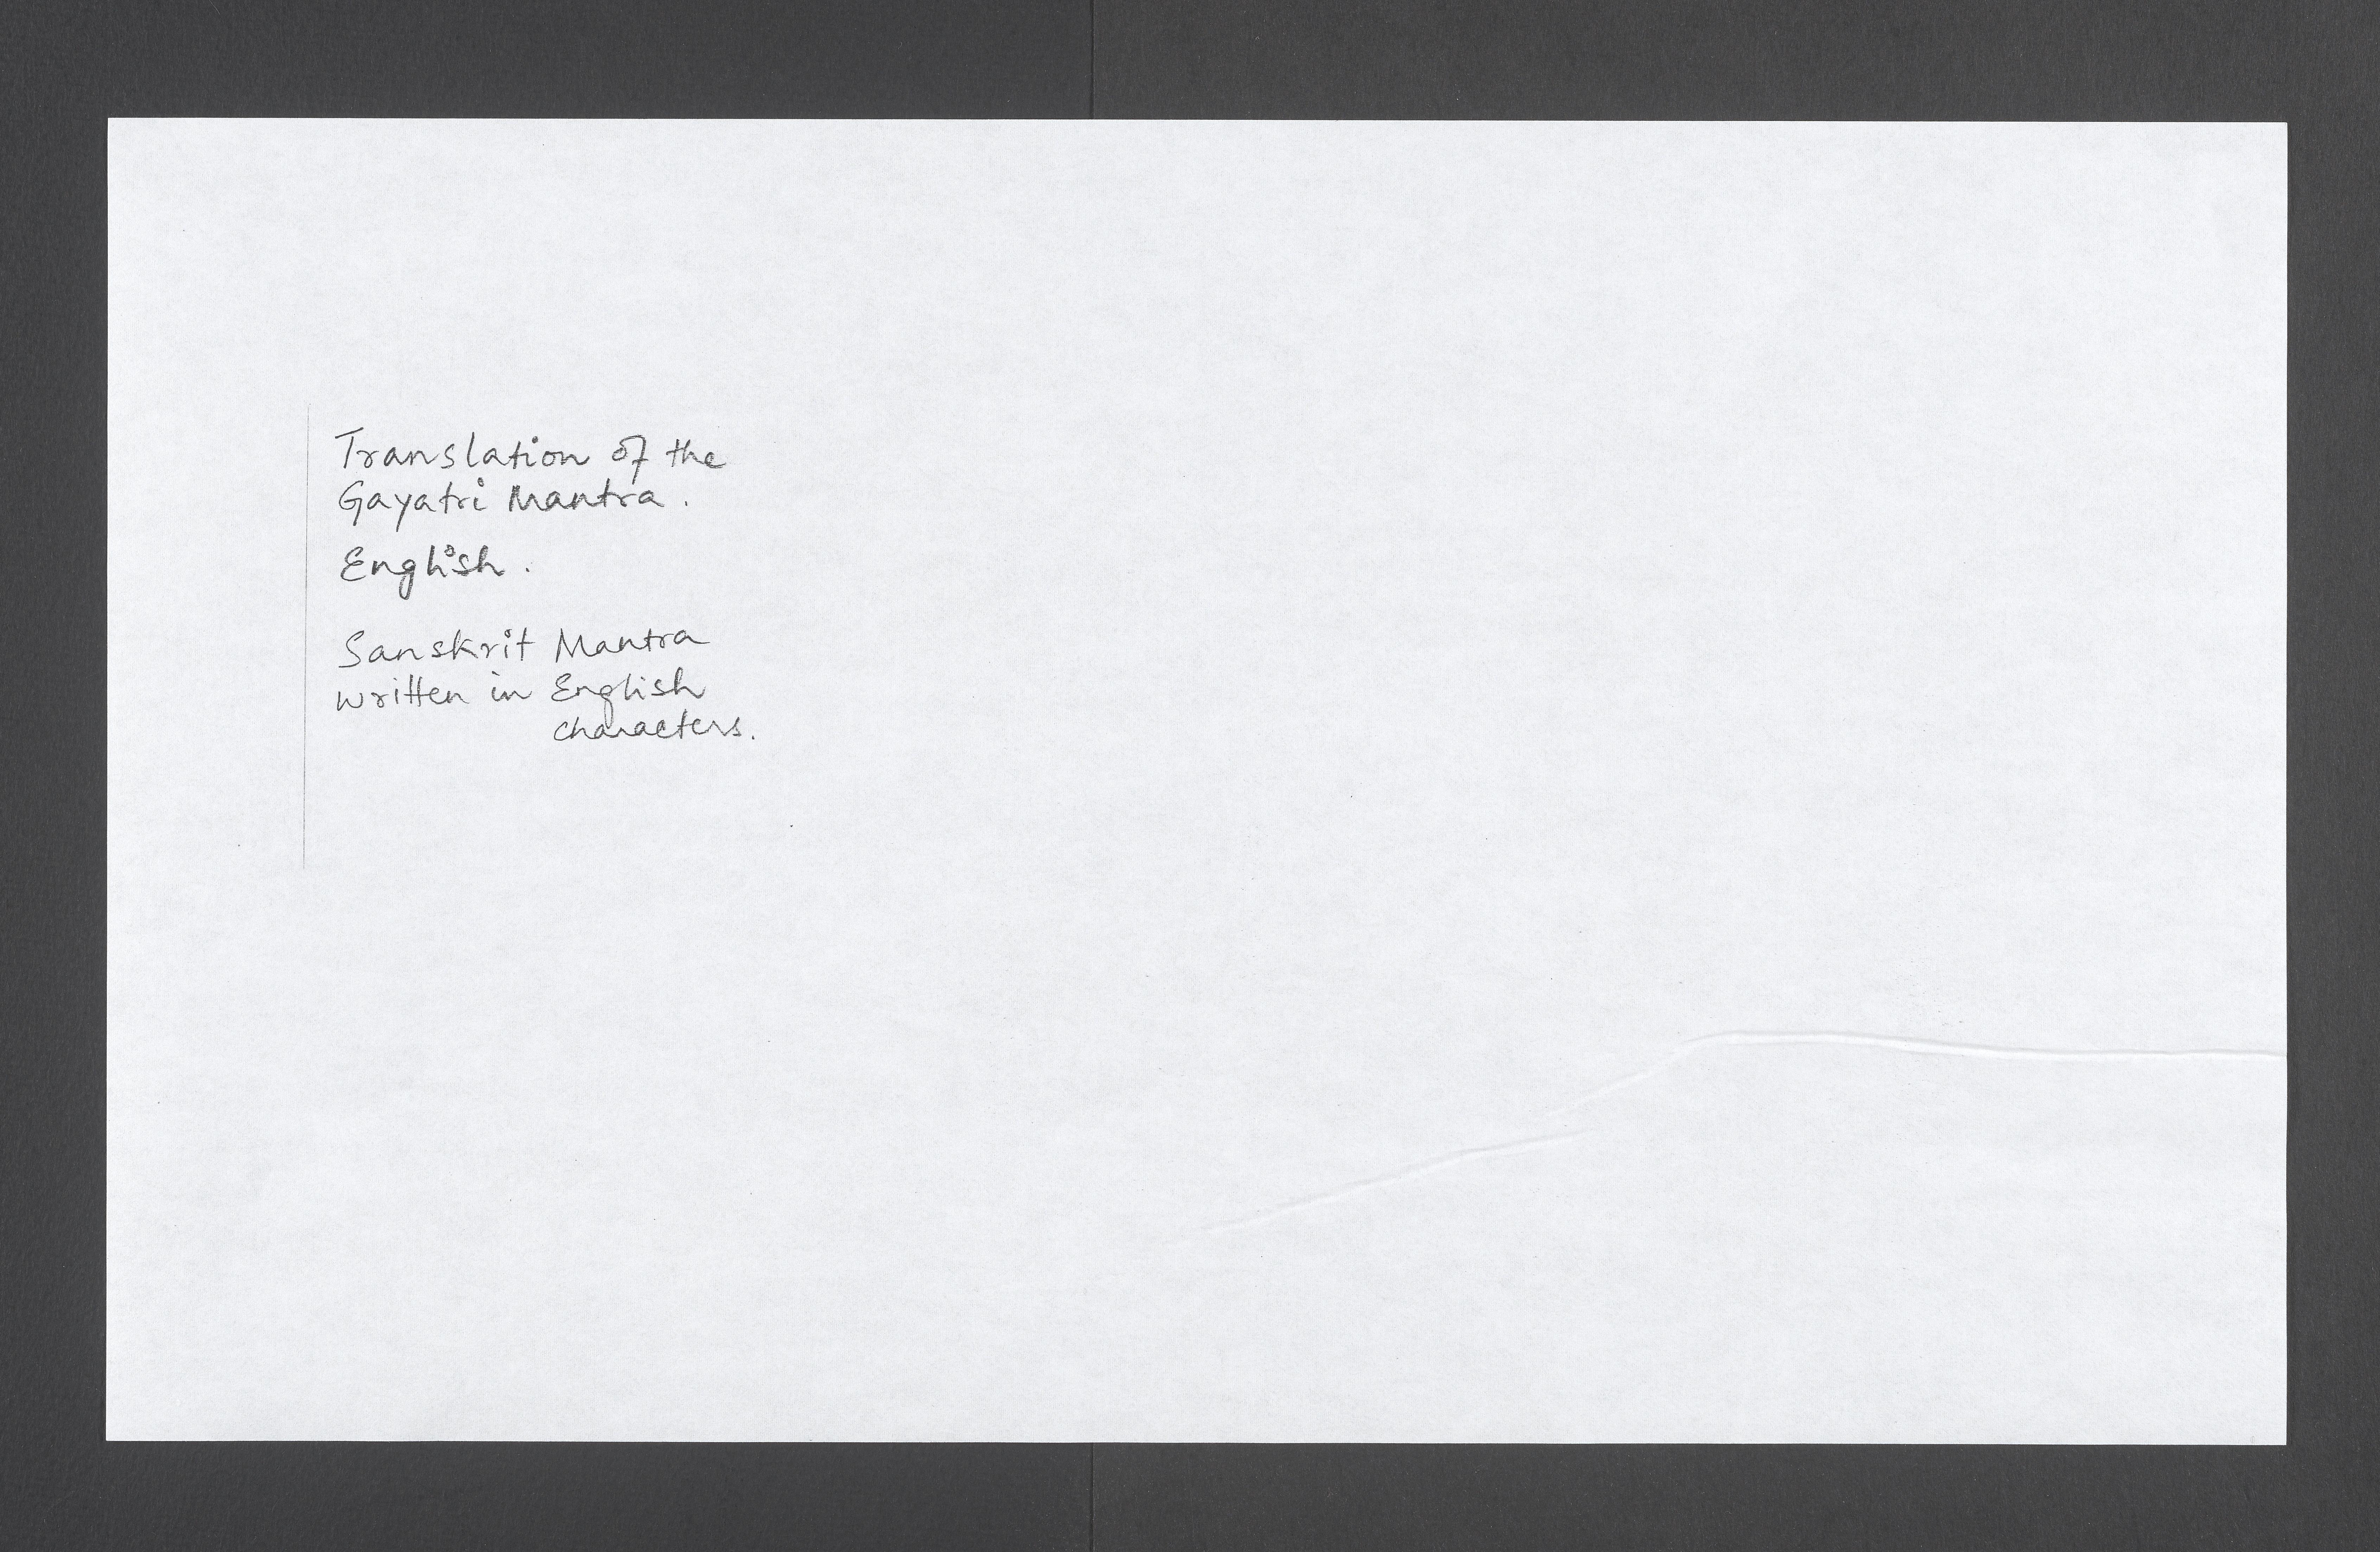 Translation of the
Gayatri Mantra.
English.
Sanskrit Mantra
written in English
characters.